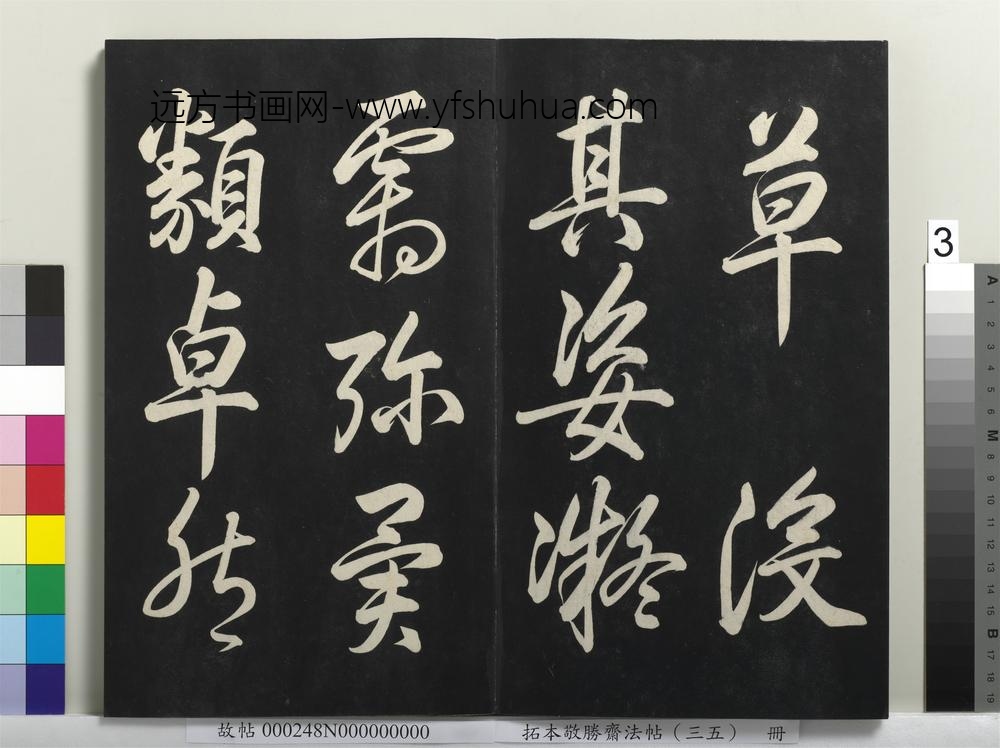 草沒
其姿凝
霜殄異
類卓然
远方书画网-www.yfshuhua.com
3
A
1
2
3
4
5
6
M
8
9
10
11
12
13
14
15
B
17
18
19
故帖 000248N000000000
拓本敬勝齋法帖（三五） 冊